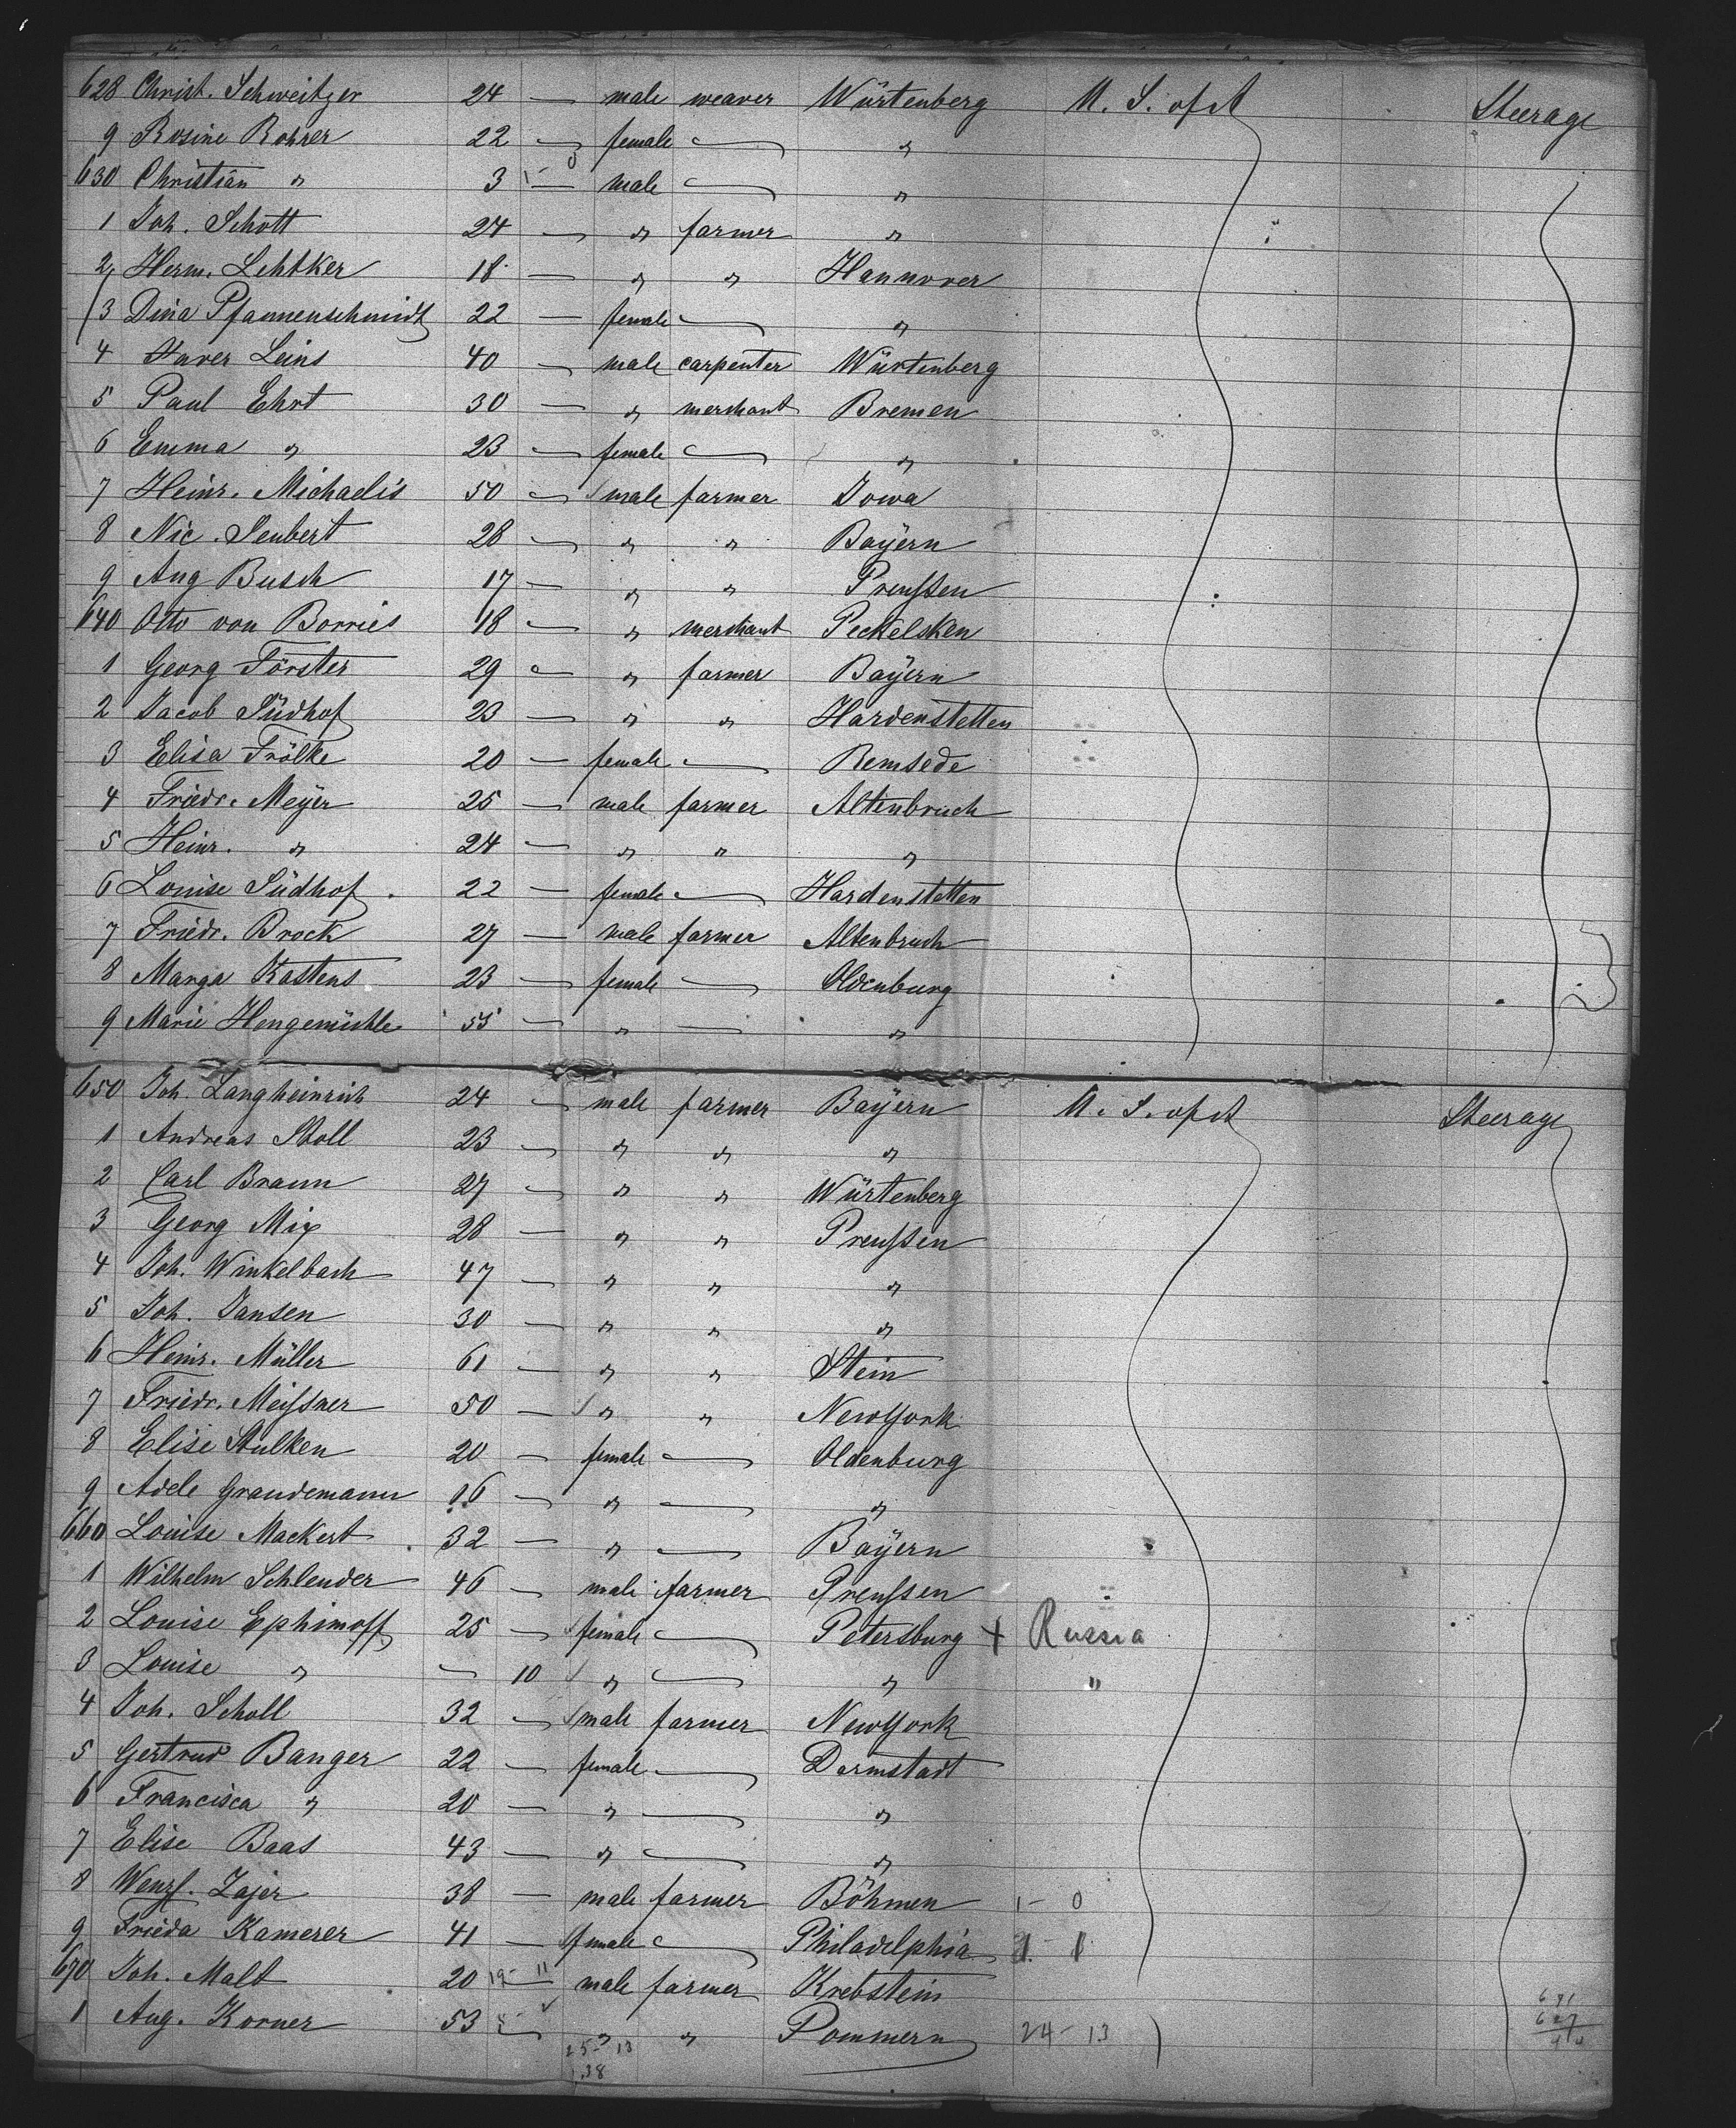 628 Christ. Schweitzer 24 — male weaver Würtenberg U. S. of A Steerage
9 Rosine Rohrer 22 — female — "
630 Christian " 3 — male — "
1 Joh. Schott 24 — " farmer "
2 Herm. Lehtker 18 — " " Hannover
3 Dina Pfannenschmidt 22 — female — "
4 Xaver Leins 40 — male carpenter Würtenberg
5 Paul Ehrt 30 — " merchant Bremen
6 Emma " 23 — female — "
7 Heinr. Michaelis 50 — male farmer Iowa
8 Nic. Seubert 28 — " " Bayern
9 Aug Busch 17 — " " Preußen
640 Otto von Borries 18 — " merchant Peckelsken
1 Georg Förster 29 — " farmer Bayern
2 Jacob Südhof 23 — " " Hardenstetten
3 Elisa Frölke 20 — female — Remsede
4 Friedr. Meyer 25 — male farmer Altenbruch
5 Heinr. " 24 — " " "
6 Louise Südhof 22 — female — Hardenstetten
7 Friedr. Brock 27 — male farmer Altenbruch
8 Marga Kastens 23 — female — Oldenburg
9 Marie Hengemühle 55 — " — "
650 Joh. Langheinrich 24 — male farmer Bayern U. S. of A Steerage
1 Andreas Stoll 23 — " " "
2 Carl Braun 27 — " " Würtenberg
3 Georg Mix 28 — " " Preußen
4 Joh. Winkelbach 47 — " " "
5 Joh. Jansen 30 — " " "
6 Heinr. Müller 61 — " " Stein
7 Friedr. Meißner 50 — " " NewYork
8 Elise Stulken 20 — female — Oldenburg
9 Adele Graudemann 16 — " — "
660 Louise Mackert 32 — " — Bayern
1 Wilhelm Schleuder 46 — male farmer Preußen
2 Louise Ephimoff 25 — female — Petersburg + Russia
3 Louise " — 10 " — " "
4 Joh. Scholl 32 — male farmer NewYork
5 Gertrud Banger 22 — female — Darmstadt
6 Francisca " 20 — " — "
7 Elise Baas 43 — " — "
8 Wenzl. Zajer 38 — male farmer Böhmen 1 - 0
9 Frieda Kamerer 41 — female — Philadelphia 1
670 Joh. Malt 20 19 - 11 male farmer Krebstein
1 Aug. Korner 53 — " " Pommern 24 - 13
25 - 13
38